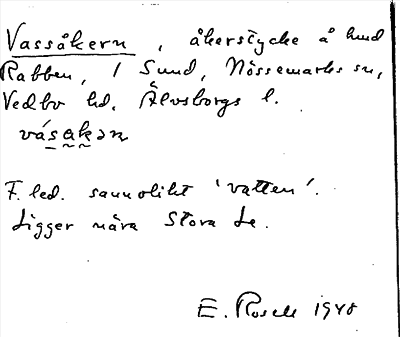 Vassåkern, åkerstycke å hmd
Rabben, 1 Sund, Nössemarks sn,
Vedbo hd. Älvsborgs l.
vásakən
F. led. sannolikt 'vatten'.
Ligger nära Stora Le.
E. Rosell 1948